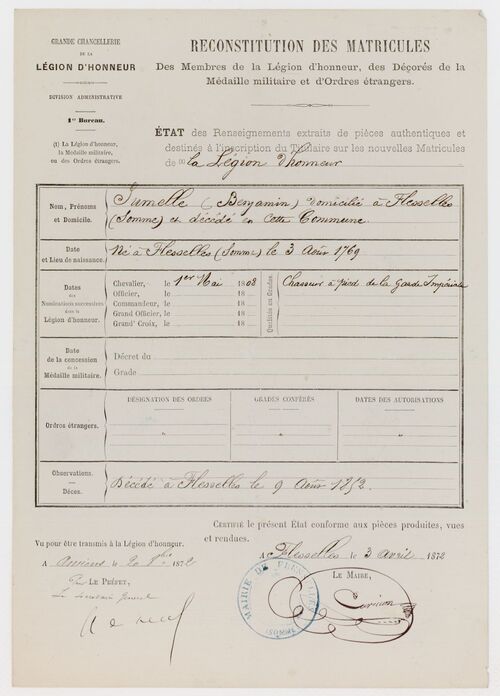 GRANDE CHANCELLERIE
DE LA
LÉGION D'HONNEUR
DIVISION ADMINISTRATIVE
1er Bureau.
(1) La Légion d'honneur,
la Médaille militaire,
ou des Ordres étrangers.
RECONSTITUTION DES MATRICULES
Des Membres de la Légion d'honneur, des Décorés de la
Médaille militaire et d'Ordres étrangers.
ÉTAT des Renseignements extraits de pièces authentiques et
destinés à l'inscription du Titulaire sur les nouvelles Matricules
de (1) la Légion d'honneur
Nom, Prénoms
et Domicile.
Jumelle (Benjamin) domicilié à Flesselles
(Somme) et décédé en cette Commune.
Date
et Lieu de naissance.
Né à Flesselles (Somme) le 3 Août 1769
Dates
des
Nominations successives
dans la
Légion d'honneur.
Chevalier, le 1er Mai 1808
Officier, le 18
Commandeur, le 18
Grand Officier, le 18
Grand' Croix, le 18
Qualités ou Grades.
Chasseur à pied de la Garde Impériale
Date
de la concession
de la
Médaille militaire.
Décret du
Grade
Ordres étrangers.
DÉSIGNATION DES ORDRES
GRADES CONFÉRÉS
DATES DES AUTORISATIONS
Observations.
Décès.
Décédé à Flesselles le 9 Août 1852.
CERTIFIÉ le présent État conforme aux pièces produites, vues
et rendues.
A Flesselles le 3 avril 1872
LE MAIRE,
MAIRIE DE FLESSELLES
(SOMME)
Vu pour être transmis à la Légion d'honneur.
A Amiens le 20 1872
Pour LE PRÉFET,
Le Secrétaire Général